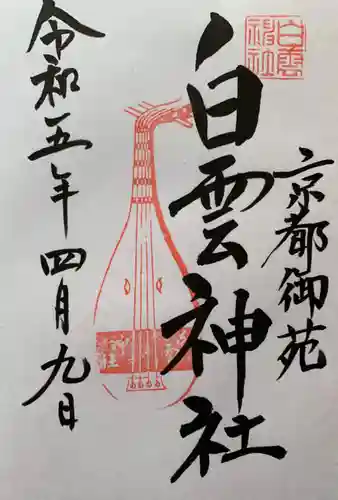 白雲神社
京都御苑
白雲神社
令和五年四月九日